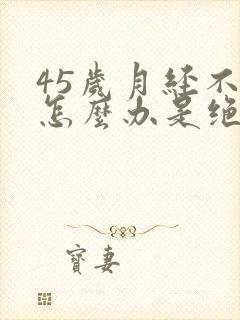 45歲月经不
怎麼办是绝
寶妻